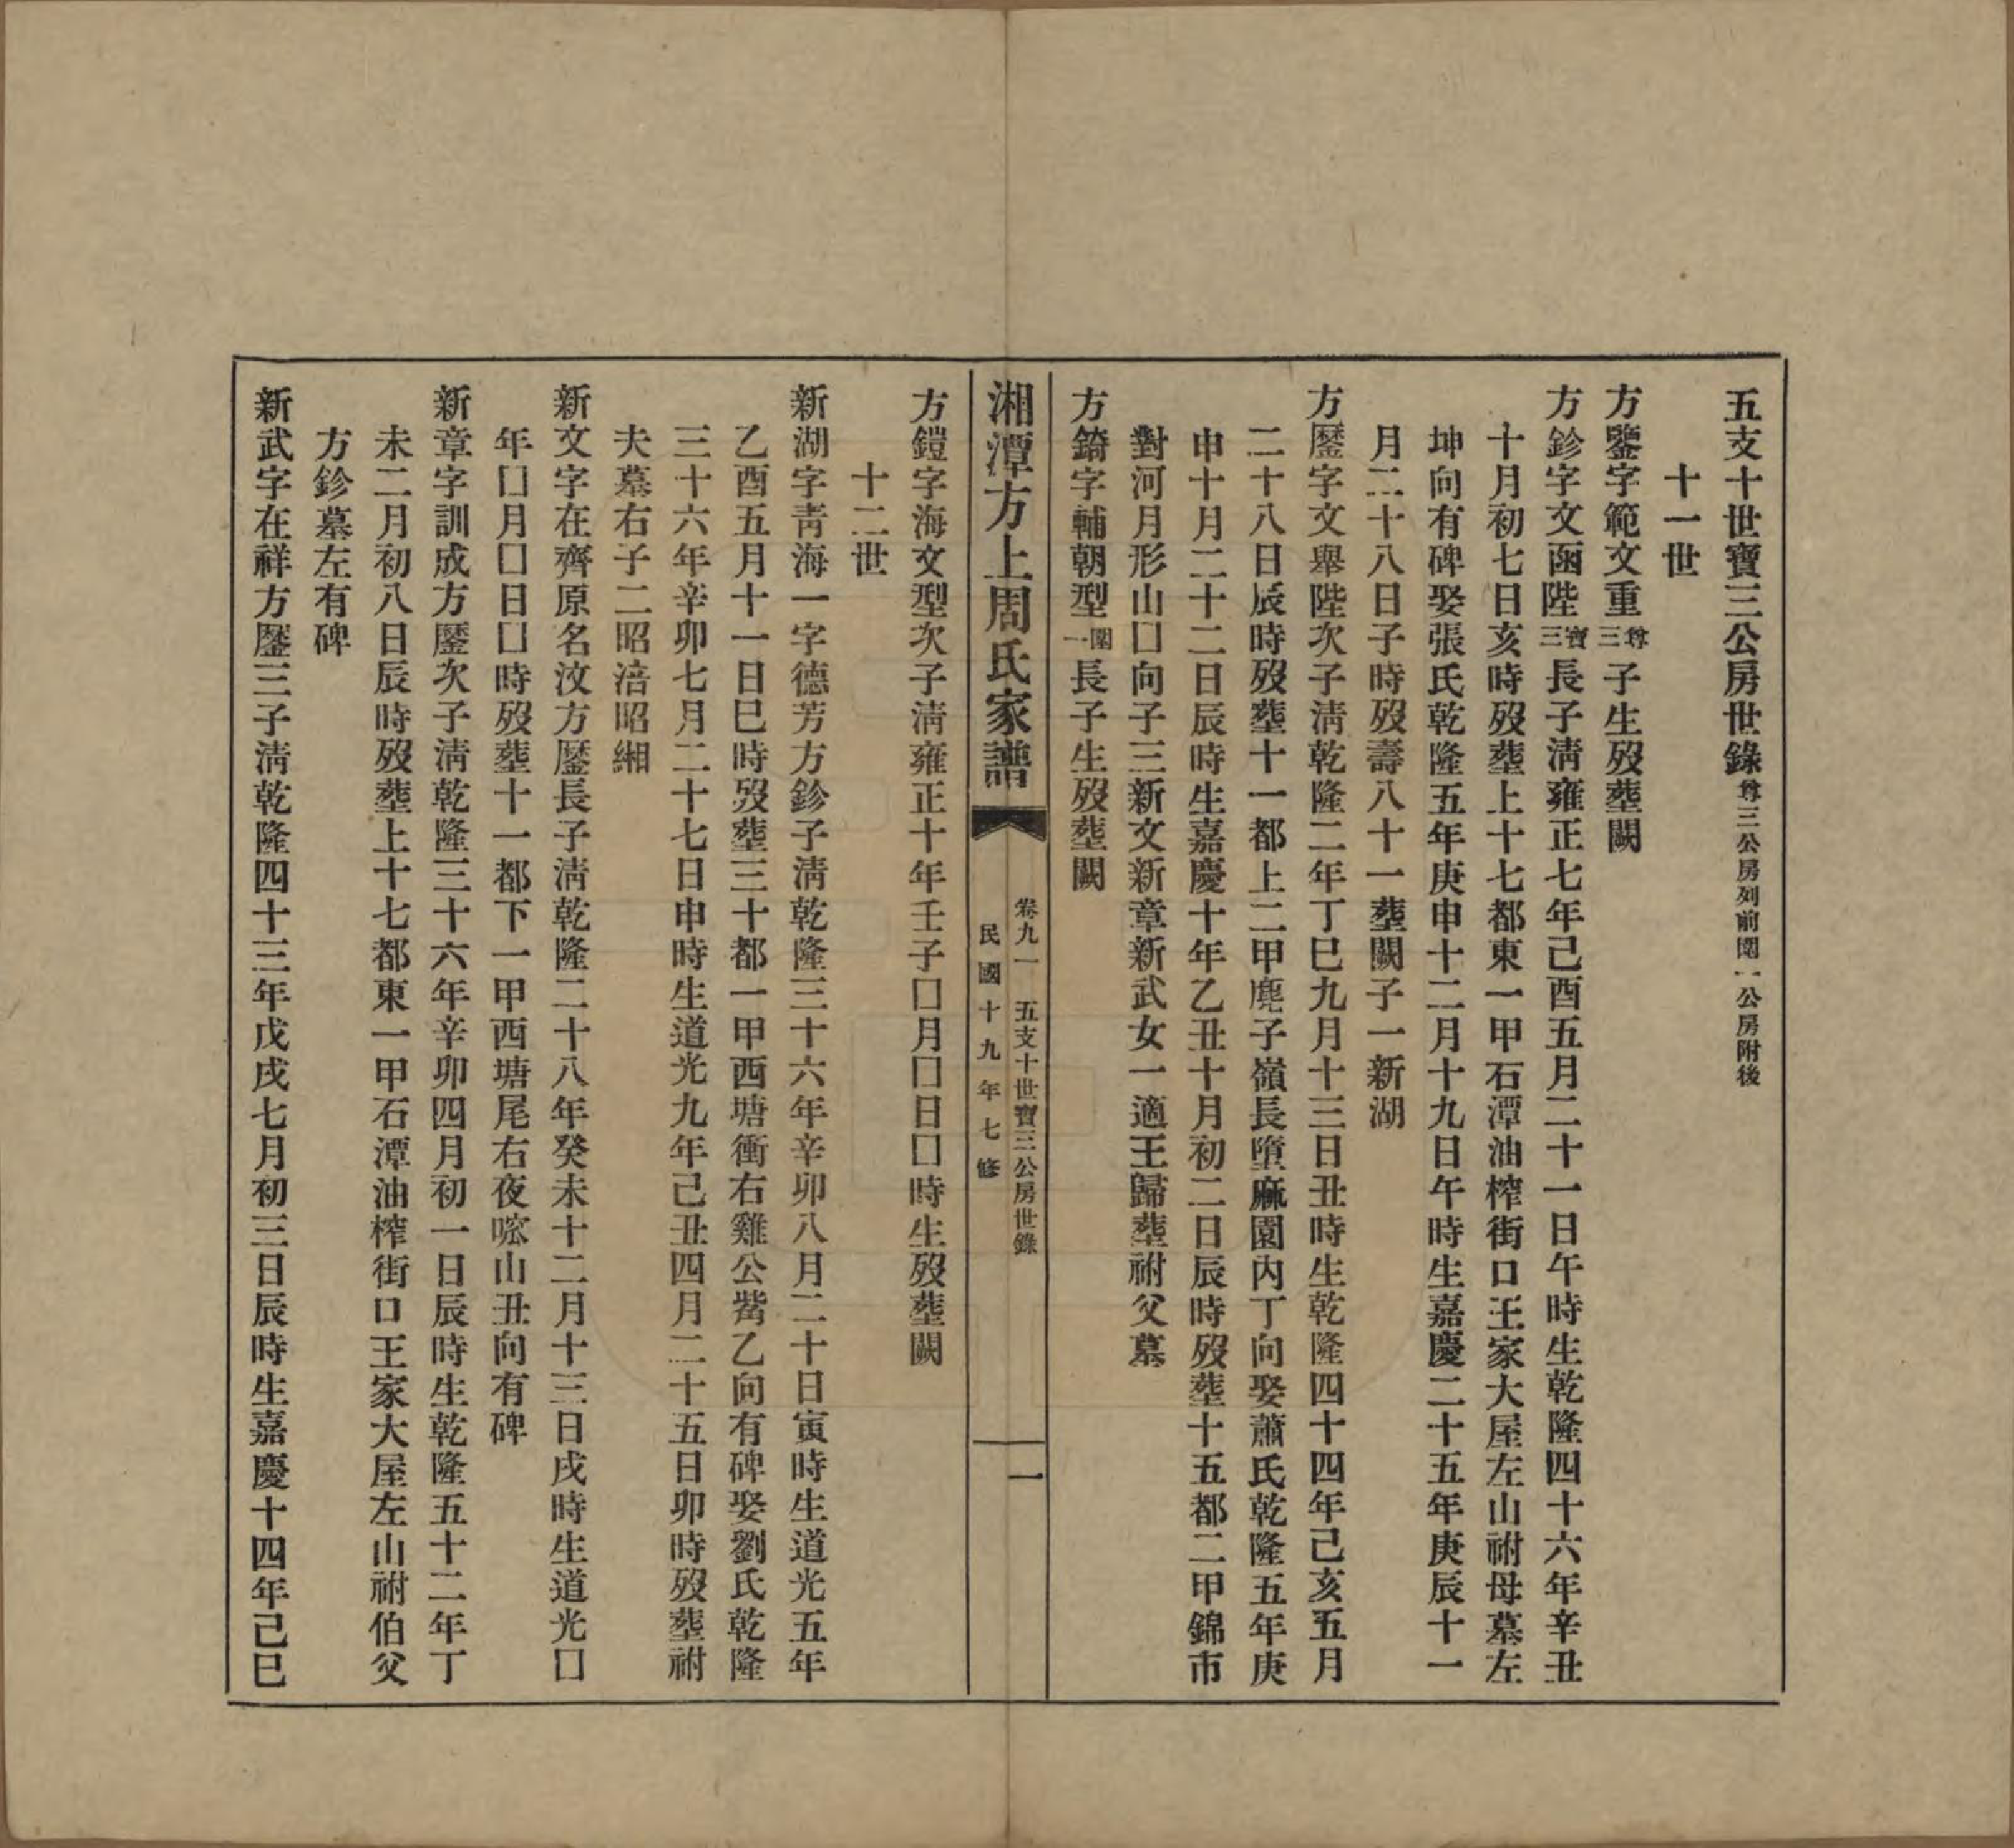 五支十世寶三公房世錄尊三公房列前闓一公房附後
十一世
方鑒字範文重尊三子生歿葬闕
方鉁字文函陛寶三長子淸雍正七年己酉五月二十一日午時生乾隆四十六年辛丑
十月初七日亥時歿葬上十七都東一甲石潭油榨街口王家大屋左山祔母墓左
坤向有碑娶張氏乾隆五年庚申十二月十九日午時生嘉慶二十五年庚辰十一
月二十八日子時歿壽八十一葬闕子一新湖
方壂字文舉陛次子淸乾隆二年丁巳九月十三日丑時生乾隆四十四年己亥五月
二十八日辰時歿葬十一都上二甲麂子嶺長墮麻園內丁向娶蕭氏乾隆五年庚
申十月二十二日辰時生嘉慶十年乙丑十月初二日辰時歿葬十五都二甲錦市
對河月形山囗向子三新文新章新武女一適王歸葬祔父墓
方錡字輔朝型闓一長子生歿葬闕
湘潭方上周氏家譜
卷九一 五支十世寶三公房世錄
民國十九年七修
一
方鎧字海文型次子淸雍正十年壬子囗月囗日囗時生歿葬闕
十二世
新湖字靑海一字德芳方鉁子淸乾隆三十六年辛卯八月二十日寅時生道光五年
乙酉五月十一日巳時歿葬三十都一甲西塘衝右雞公嘴乙向有碑娶劉氏乾隆
三十六年辛卯七月二十七日申時生道光九年己丑四月二十五日卯時歿葬祔
夫墓右子二昭涪昭緗
新文字在齊原名汶方壂長子淸乾隆二十八年癸未十二月十三日戌時生道光囗
年囗月囗日囗時歿葬十一都下一甲西塘尾右夜山丑向有碑
新章字訓成方壂次子淸乾隆三十六年辛卯四月初一日辰時生乾隆五十二年丁
未二月初八日辰時歿葬上十七都東一甲石潭油榨街口王家大屋左山祔伯父
方鉁墓左有碑
新武字在祥方壂三子淸乾隆四十三年戊戌七月初三日辰時生嘉慶十四年己巳